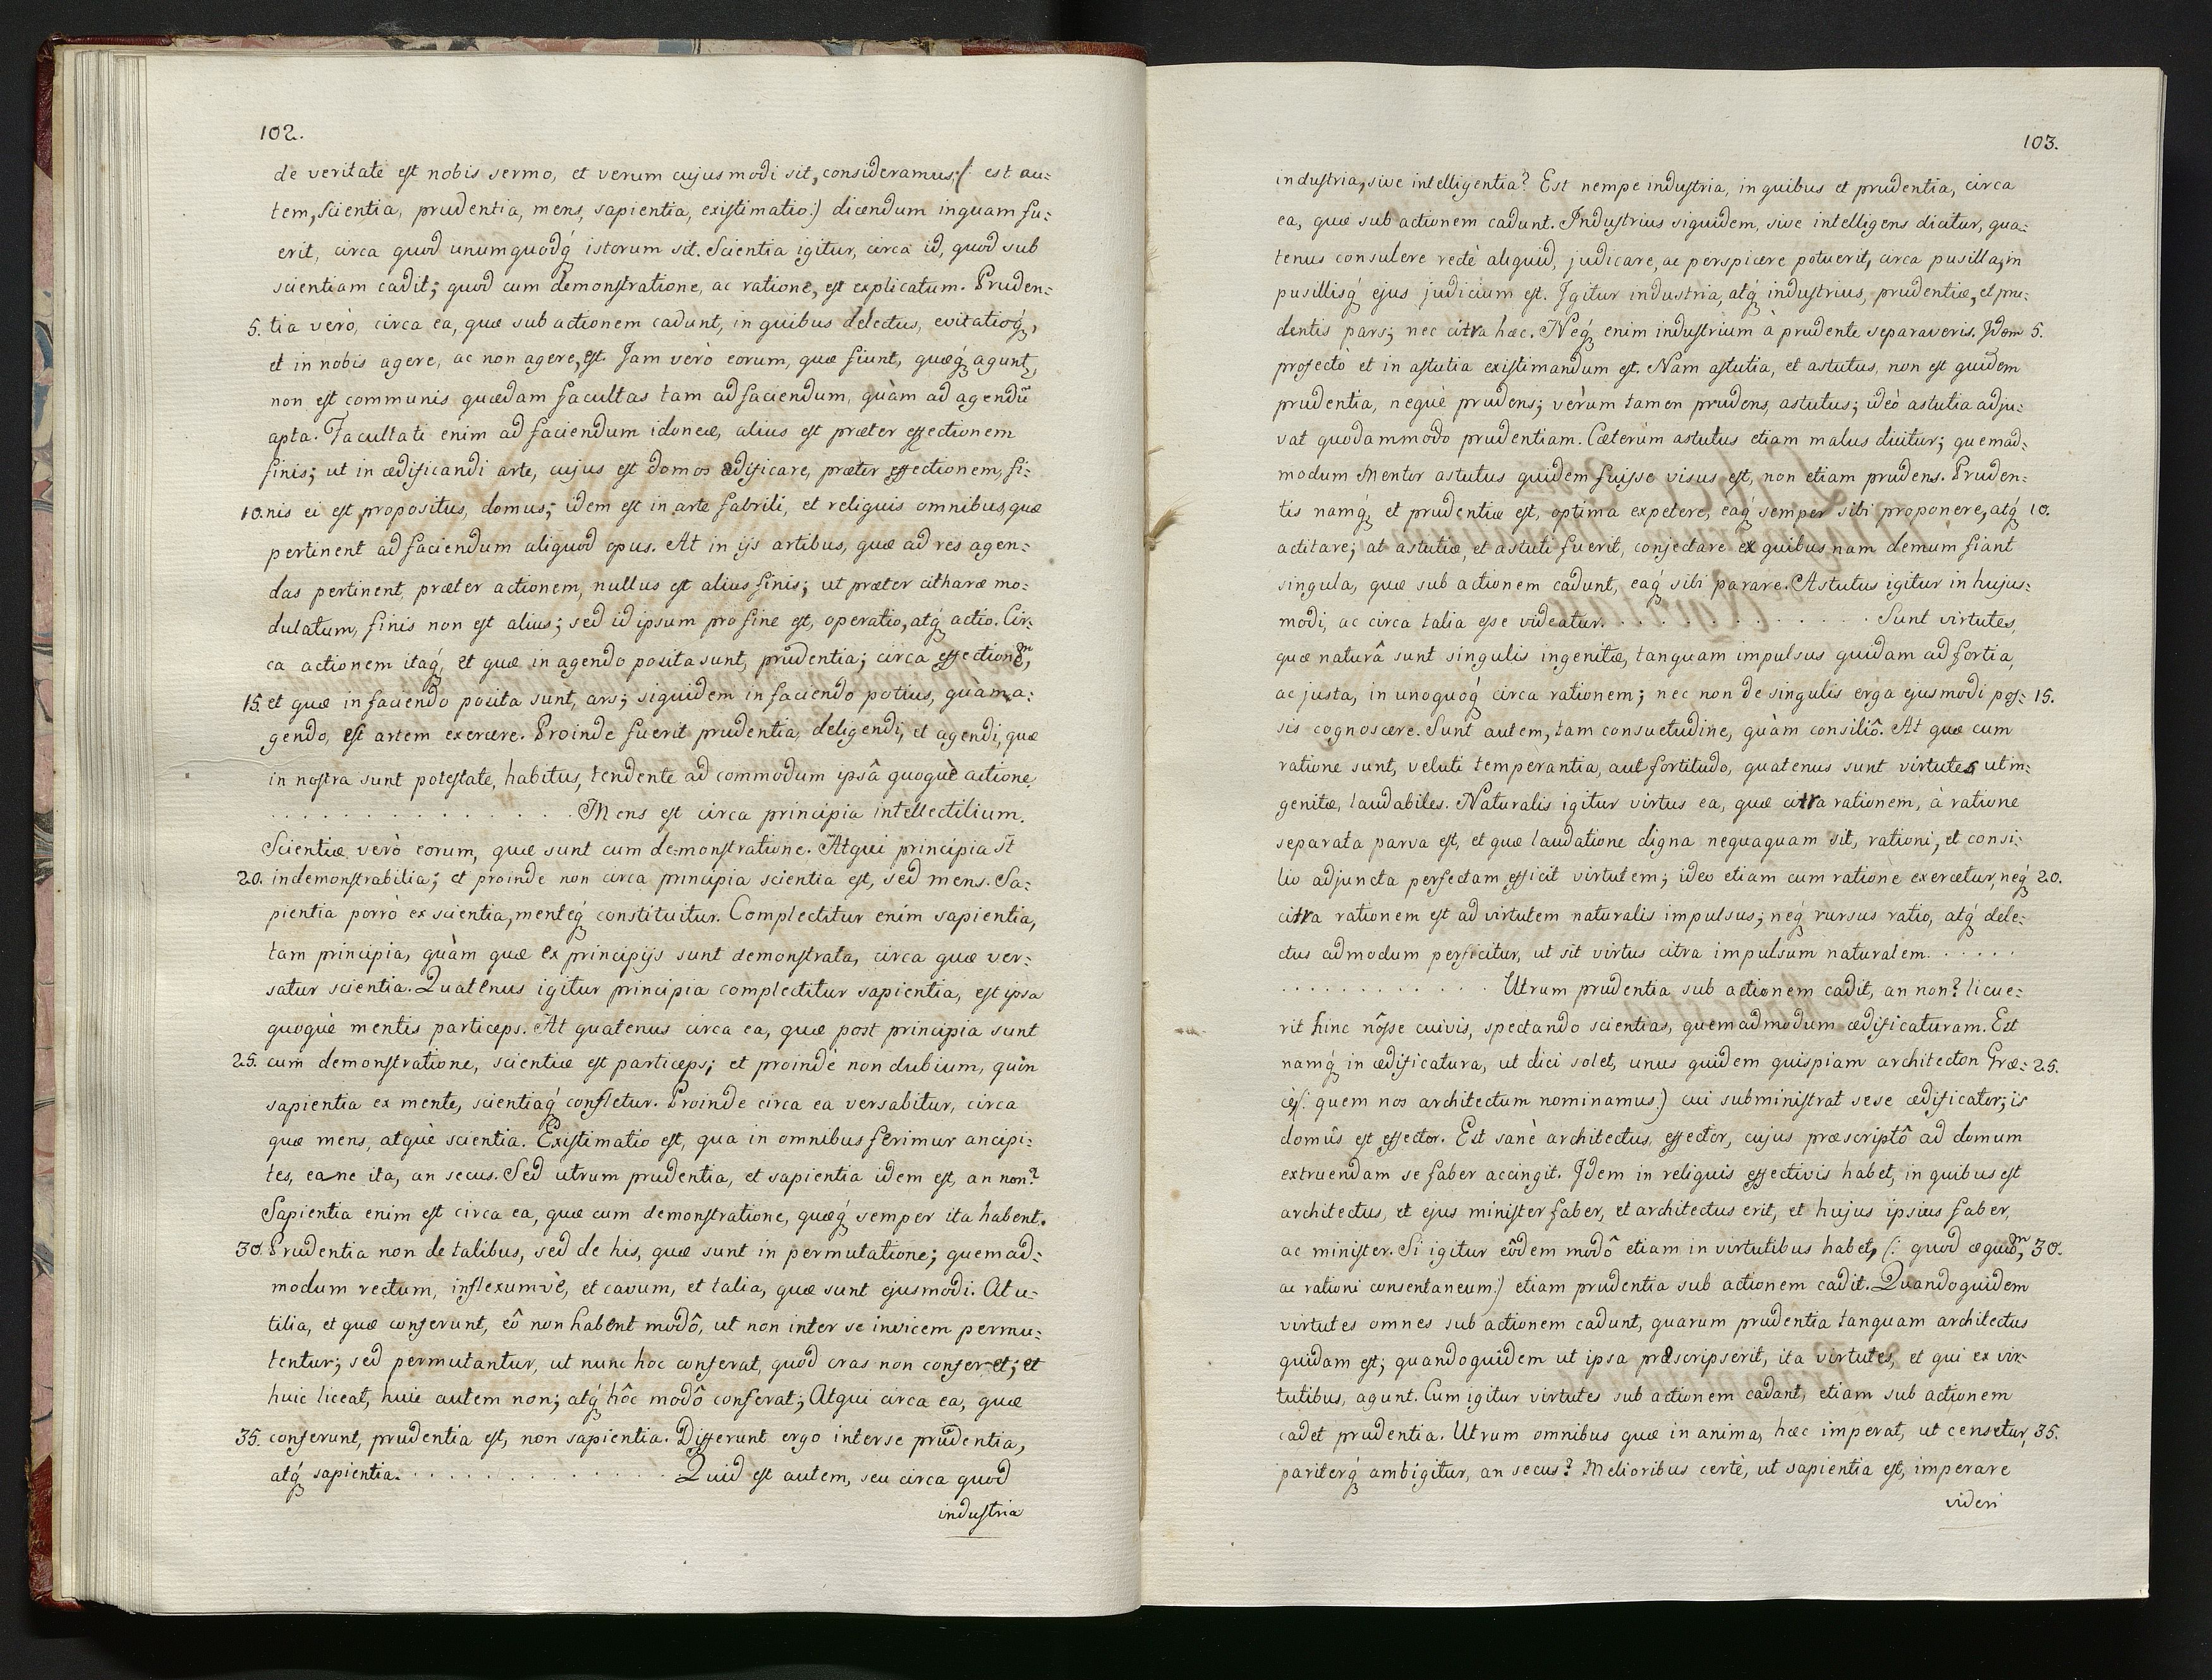 102.
de veritate est nobis sermo, et verum cujusmodi sit, consideramus; (: est au=
tem, scientia, prudentia, mens, sapientia, existimatio:) dicendum inquam fu=
erit, circa quod unumquodq́ istorum sit. Scientia igitur, circa id, quod sub
scientiam cadit; quod cum demonstratione, ac ratione, est explicatum. Pruden=
5. tia verò, circa ea, quæ sub actionem cadunt, in quibus delectus, evitatioq́,
et in nobis agere, ac non agere, est. Jam verò eorum, quæ fiunt, quæq́ agunt,
non est communis quædam facultas tam ad faciendum, quàm ad agendū
apta. Facultati enim ad faciendum idoneæ, alius est præter effectionem
finis; ut in ædificandi arte, cujus est domos ædificare, præter effectionem, fi=
10. nis ei est propositus, domus; idem est in arte fabrili, et reliquis omnibus, quæ
pertinent ad faciendum aliquod opus. At in ijs artibus, quæ ad res agen=
das pertinent, præter actionem, nullus est alius finis; ut præter citharæ mo=
dulatum, finis non est alius; sed id ipsum pro fine est, operatio, atq́ actio. Cir=
ca actionem itaq́, et quæ in agendo posita sunt, prudentia; circa effectionem,
15. et quæ in faciendo posita sunt, ars; siquidem in faciendo potius, quàm a=
gendo, est artem exercere. Proinde fuerit prudentia, deligendi, et agendi, quæ
in nostra sunt potestate, habitus, tendente ad commodum ipsâ quoquè actione.
. . . . . . . . . . . . . . . . Mens est circa principia intellectilium.
Scientiæ verò eorum, quæ sunt cum demonstratione. Atqui principia st̄
20. indemonstrabilia; et proinde non circa principia scientia est, sed mens. Sa=
pientia porrò ex scientia, menteq́ constituitur. Complectitur enim sapientia,
tam principia, quàm quæ ex principijs sunt demonstrata, circa quæ ver=
satur scientia. Quatenus igitur principia complectitur sapientia, est ipsa
quoquè mentis particeps. At quatenus circa ea, quæ post principia sunt
25. cum demonstratione, scientiæ est particeps; et proindè non dubium, quin
sapientia ex mente, scientiaq́ confletur. Proinde circa ea versabitur, circa
quæ mens, atquè scientia. Existimatio est, qua in omnibus ferimur ancipi=
tes, eane ita, an secus. Sed utrum prudentia, et sapientia idem est, an non?
Sapientia enim est circa ea, quæ cum demonstratione, quæq́ semper ita habent.
30. Prudentia non de talibus, sed de his, quæ sunt in permutatione; quemad=
modum rectum, inflexumvè, et cavum, et talia, quæ sunt ejusmodi. At u=
tilia, et quæ conferunt, eô non habent modô, ut non inter se invicem permu=
tentur; sed permutantur, ut nunc hoc conferat, quod cras non conferet; et
huic liceat, huic autem non; atq́ hôc modô conferat; Atqui circa ea, quæ
35. conferunt, prudentia est, non sapientia. Differunt ergo inter se prudentia,
atq́ sapientia. . . . . . . . . . . . . . . Quid est autem, seu circa quod
industria
103.
industria, sive intelligentia? Est nempe industria, in quibus et prudentia, circa
ea, quæ sub actionem cadunt. Industrius siquidem, sive intelligens dicitur, qua=
tenus consulere rectè aliquid, judicare, ac perspicere potuerit, circa pusilla, in
pusillisq́ ejus judicium est. Igitur industria, atq́ industrius, prudentiæ, et pru=
dentis pars; nec citra hæc. Neq́ enim industrium à prudente separaveris. Idem 5.
profectò et in astutia existimandum est. Nam astutia, et astutus, non est quidem
prudentia, nequè prudens; verùm tamen prudens, astutus; ideò astutia adju=
vat quodammodo prudentiam. Cæterùm astutus etiam malus dicitur; quemad=
modum Mentor astutus quidem fuisse visus est, non etiam prudens. Pruden=
tis namq́, et prudentiæ est, optima expetere, eaq́ semper sibi proponere, atq́ 10.
actitare; at astutiæ, et astuti fuerit, conjectare ex quibusnam demum fiant
singula, quæ sub actionem cadunt, eaq́ sibi parare. Astutus igitur in hujus=
modi, ac circa talia esse videatur. . . . . . . . . . . . . . Sunt virtutes,
quæ naturâ sunt singulis ingenitæ, tanquam impulsus quidam ad fortia,
ac justa, in unoquoq́ circa rationem; nec non de singulis erga ejusmodi pos= 15.
sis cognoscere. Sunt autem, tam consuetudine, quàm consiliô. At quæ cum
ratione sunt, veluti temperantia, aut fortitudo, quatenus sunt virtutes, ut in=
genitæ, laudabiles. Naturalis igitur virtus ea, quæ citra rationem, à ratione
separata parva est, et quæ laudatione digna nequaquam sit, rationi, et consi=
lio adjuncta perfectam efficit virtutem; ideo etiam cum ratione exercetur, neq́ 20.
citra rationem est ad virtutem naturalis impulsus; neq́ rursus ratio, atq́ dele=
ctus admodum perficitur, ut sit virtus citra impulsum naturalem. . . . . .
. . . . . . . . . . . . . Utrum prudentia sub actionem cadit, an non? licue=
rit hinc nôsse cuivis, spectando scientias, quemadmodum ædificaturam. Est
namq́ in ædificatura, ut dici solet, unus quidem quispiam architecton Græ= 25.
cè (: quem nos architectum nominamus:) cui subministrat sese ædificator; is
domûs est effector. Est sanè architectus, effector, cujus præscriptô ad domum
extruendam se faber accingit. Idem in reliquis effectivis habet, in quibus est
architectus, et ejus minister faber, et architectus erit, et hujus ipsius faber,
ac minister. Si igitur eôdem modô etiam in virtutibus habet, (: quod æquum, 30.
ac rationi consentaneum:) etiam prudentia sub actionem cadit. Quandoquidem
virtutes omnes sub actionem cadunt, quarum prudentia tanquam architectus
quidam est; quandoquidem ut ipsa præscripserit, ita virtutes, et qui ex vir=
tutibus, agunt. Cum igitur virtutes sub actionem cadant, etiam sub actionem
cadet prudentia. Utrum omnibus quæ in anima, hæc imperat, ut censetur, 35.
pariterq́ ambigitur, an secus? Melioribus certè, ut sapientia est, imperare
videri